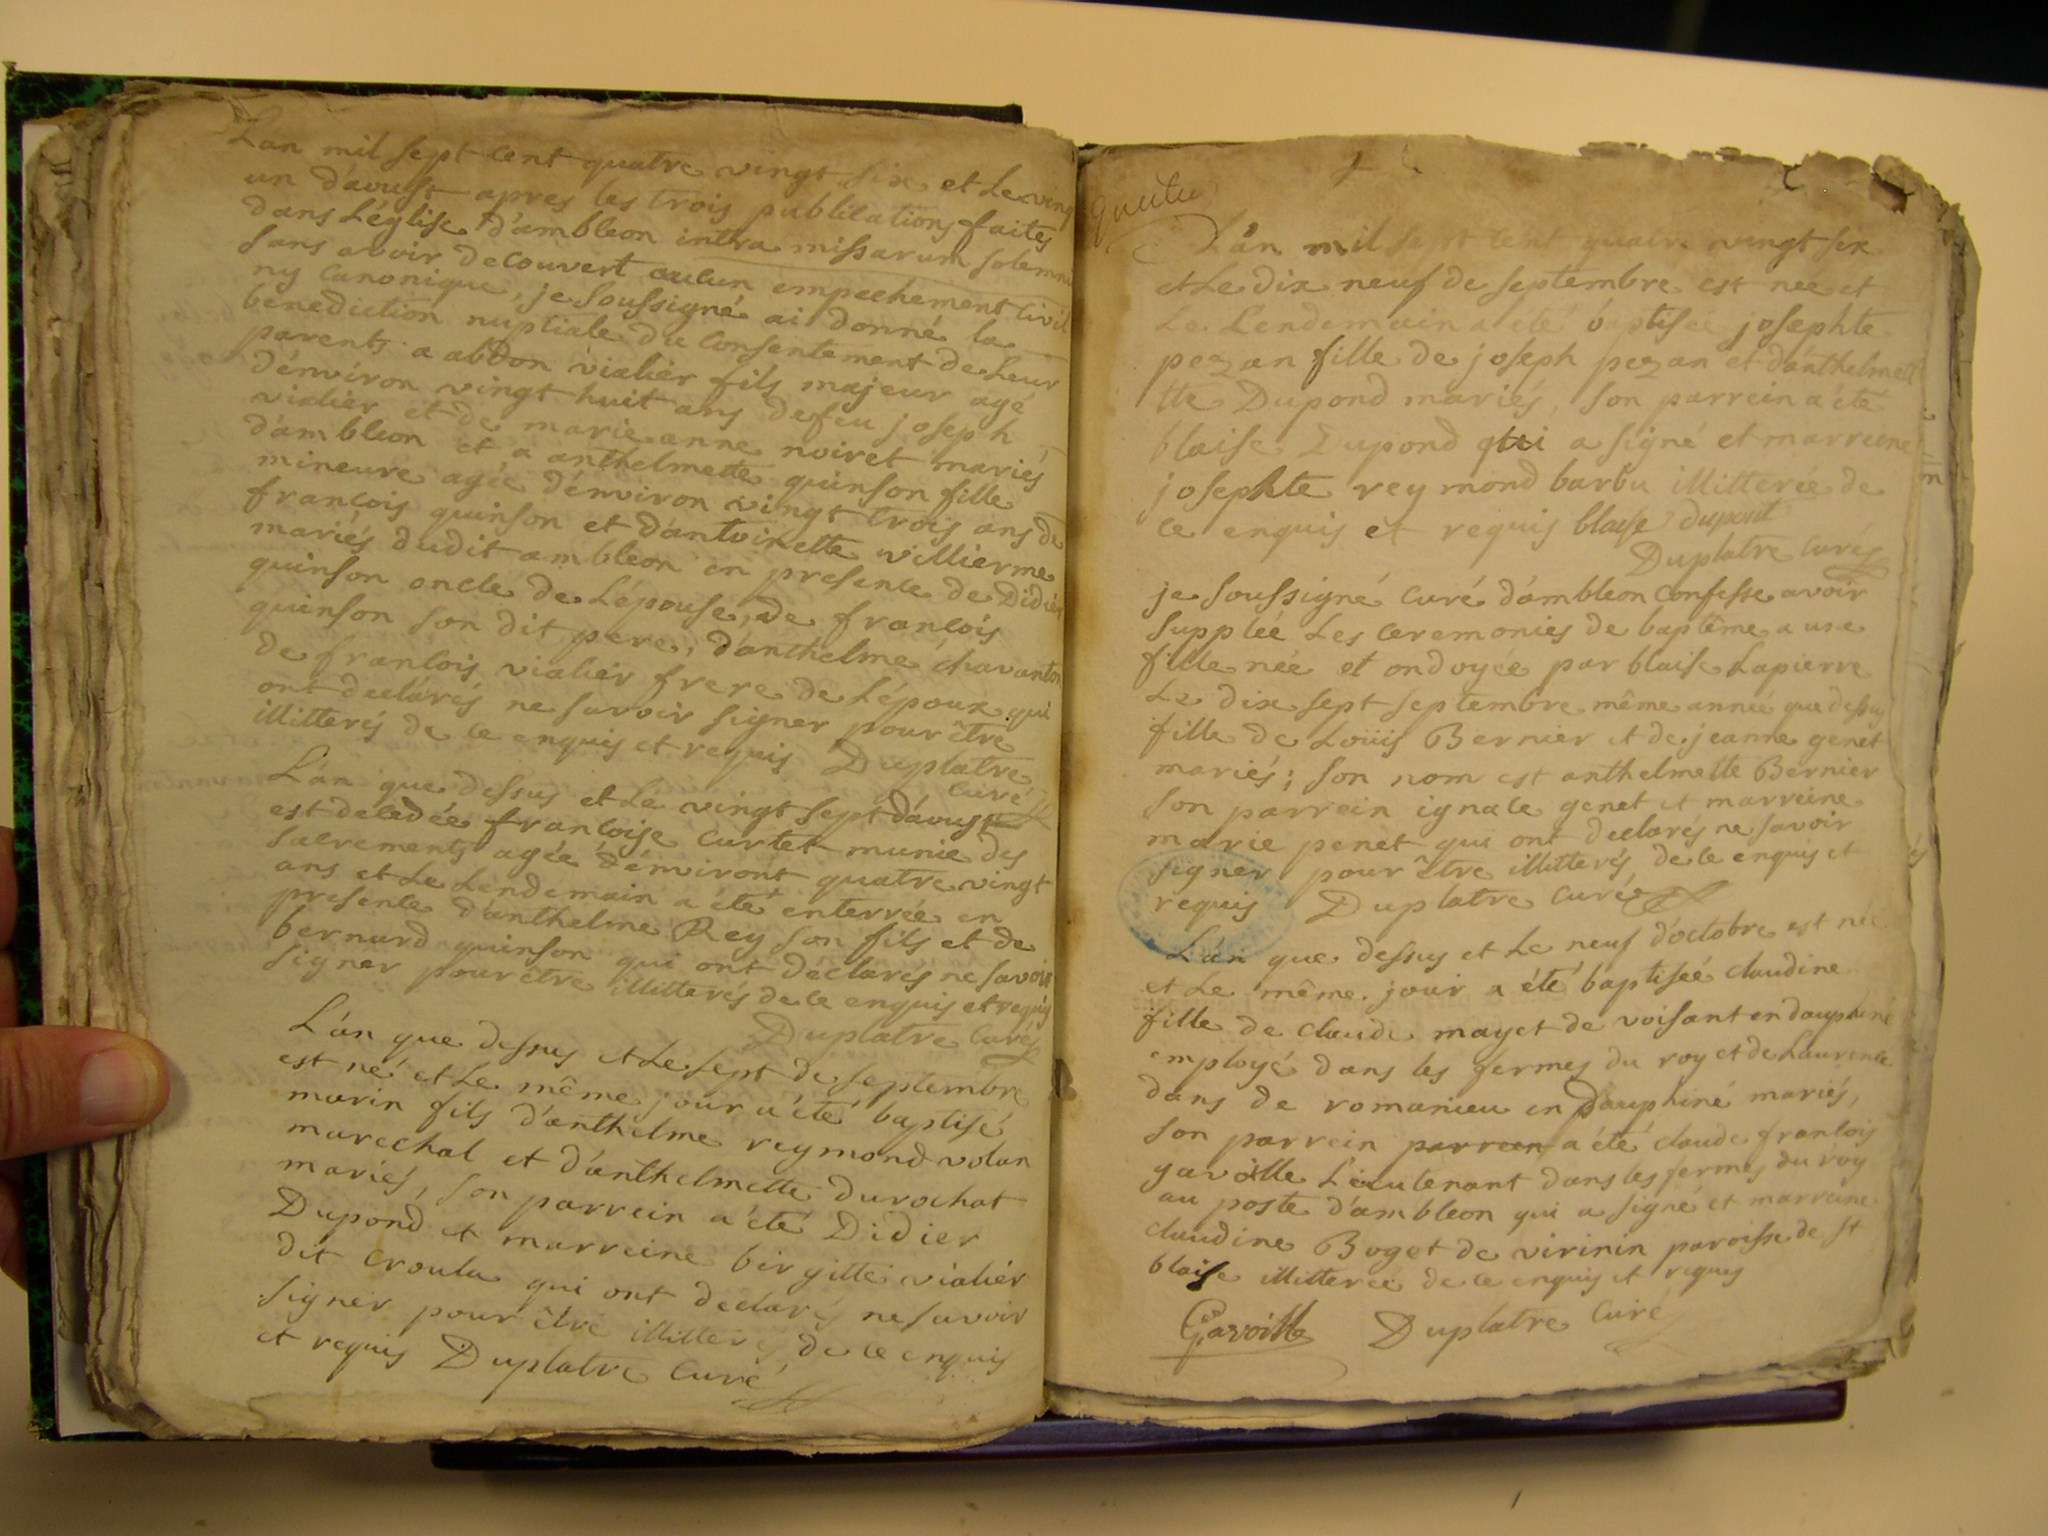 L'an mil sept cent quatre vingt six et le vingt
un d'avust apres les trois publications faites
dans l'église d'ambleon intra missarum solemnia
sans avoir decouvert aucun empechement civil
ny canonique, je soussigné ai donné la
benediction nuptiale du consentement de leur
parents a abdon vialier fils majeur agé
d'environ vingt huit ans de feu joseph
vialier et de marie anne noiret mariés
d'ambleon et a anthelmette quinson fille
mineure agée d'environ vingt trois ans de
francois quinson et d'antoinette villierme
mariés dudit ambleon en presence de Didier
quinson oncle de l'épouse, de francois
quinson son dit pere, d'anthelme chavanton
de francois vialier frere de l'époux qui
ont declarés ne savoir signer pour être
illitterés de ce enquis et requis Duplatre
curé
L'an que dessus et le vingt sept d'avust
est decedée francoise curtet munie des
sacrements agée d'environt quatre vingt
ans et le lendemain a été enterrée en
presence d'anthelme Rey son fils et de
bernard quinson qui ont déclarés ne savoir
signer pour être illitterés de ce enquis et requis
Duplatre curé
L'an que dessus et le sept de septembre
est né et le même jour a été baptisé
marin fils d'anthelme reymond volan
marechal et d'anthelmette durochat
mariés, son parrein a été Didier
Dupond et marreine birgitte vialier
dit croula qui ont declarés ne savoir
signer pour être illitterés de ce enquis
et requis Duplatre curé
L'an mil sept cent quatre vingt six
et le dix neuf de septembre est née et
le lendemain a été baptisée josephte
pezan fille de joseph pezan et d'anthelmet
tte Dupond mariés, son parrein a été
blaise Dupond qui a signé et marreine
josephte reymond barbu illitterée de
ce enquis et requis blaise dupont
Duplatre curé
je soussigné curé d'ambleon confesse avoir
supplée les ceremonies de baptême a une
fille née et ondoyée par blaise Lapierre
Le dix sept septembre même année que dessus
fille de Loüis Bernier et de jeanne genet
mariés; son nom est anthelmette Bernier
son parrein ignace genet et marreine
marie penet qui ont declarés ne savoir
signer pour être illitterés de ce enquis et
requis Duplatre curé
L'an que dessus et le neuf d'octobre est née
et le même jour a été baptiseé claudine
fille de claude mayet de voisant en dauphiné
employé dans les fermes du roy et de Laurence
dans de romanieu en Dauphiné mariés,
son parrein parrein a été claude francois
gavoille Lieutenant dans les fermes du roy
au poste d'ambleon qui a signé et marreine
claudine Boget de virinin paroisse de st
blaise illitterée de ce enquis et requis
Gavoille Duplatre curé